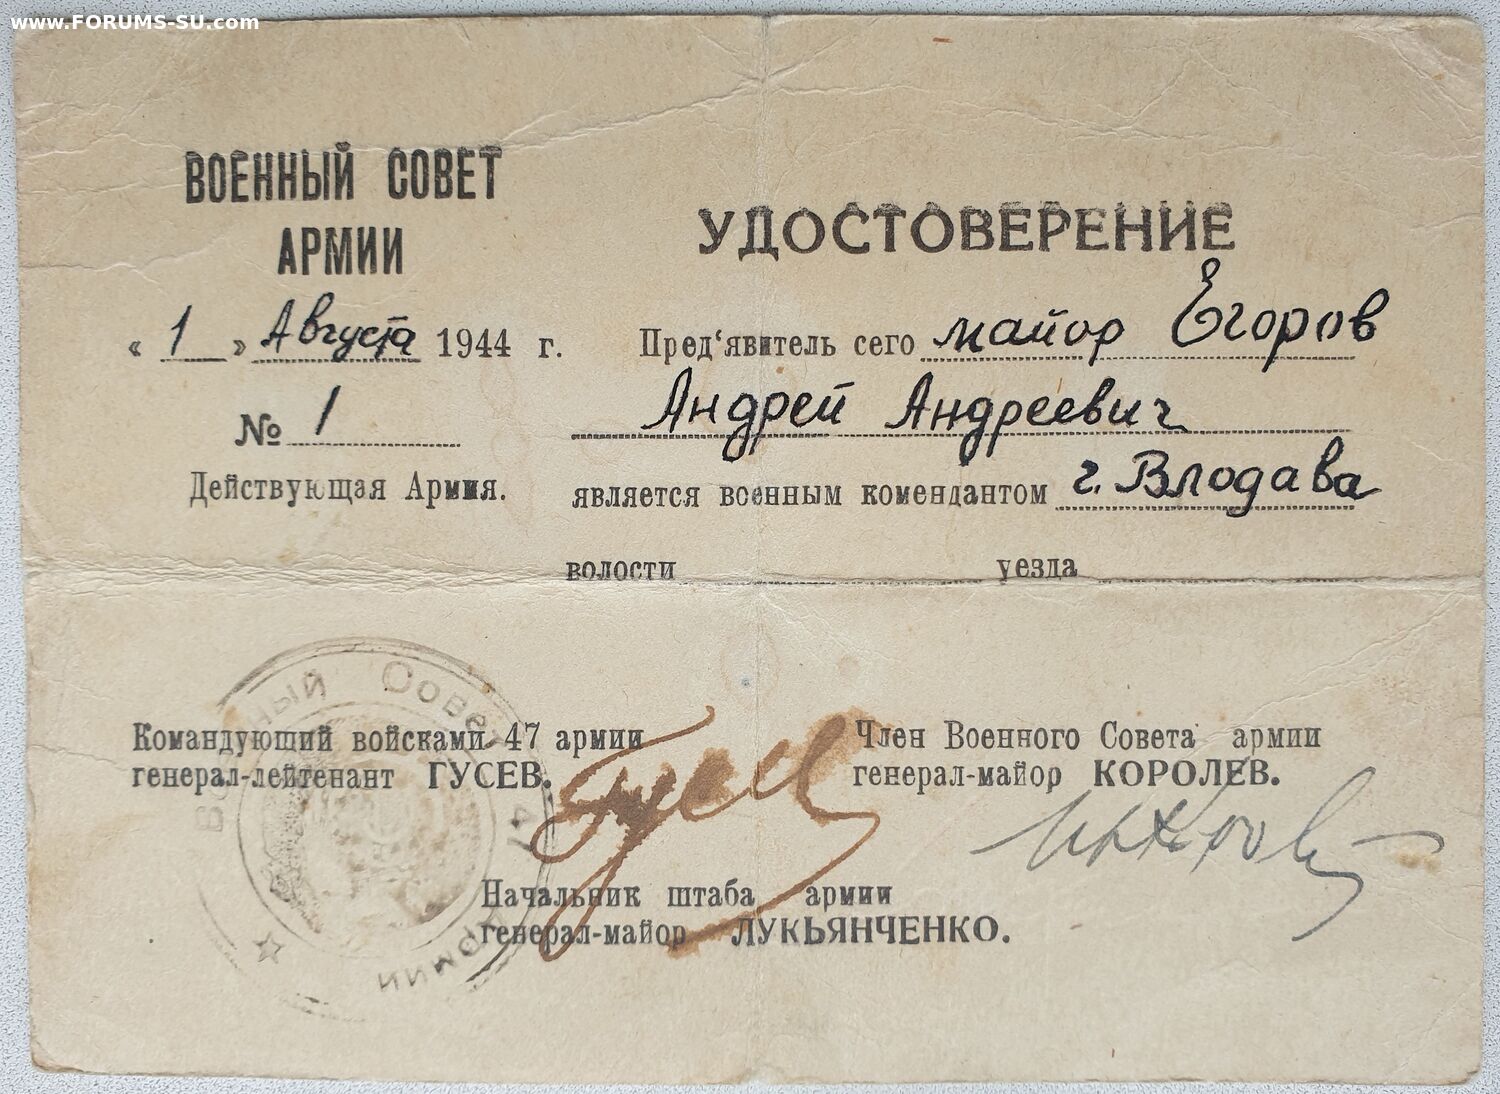 www.FORUMS-SU.com
ВОЕННЫЙ СОВЕТ
АРМИИ
« 1 » Августа 1944 г.
№ 1
Действующая Армия.
УДОСТОВЕРЕНИЕ
Пред‘явитель сего майор Егоров
Андрей Андреевич
является военным комендантом г. Влодава
волости уезда
Военный Совет 47 Армии
Командующий войсками 47 армии
генерал-лейтенант ГУСЕВ.
Член Военного Совета армии
генерал-майор КОРОЛЕВ.
Начальник штаба армии
генерал-майор ЛУКЬЯНЧЕНКО.